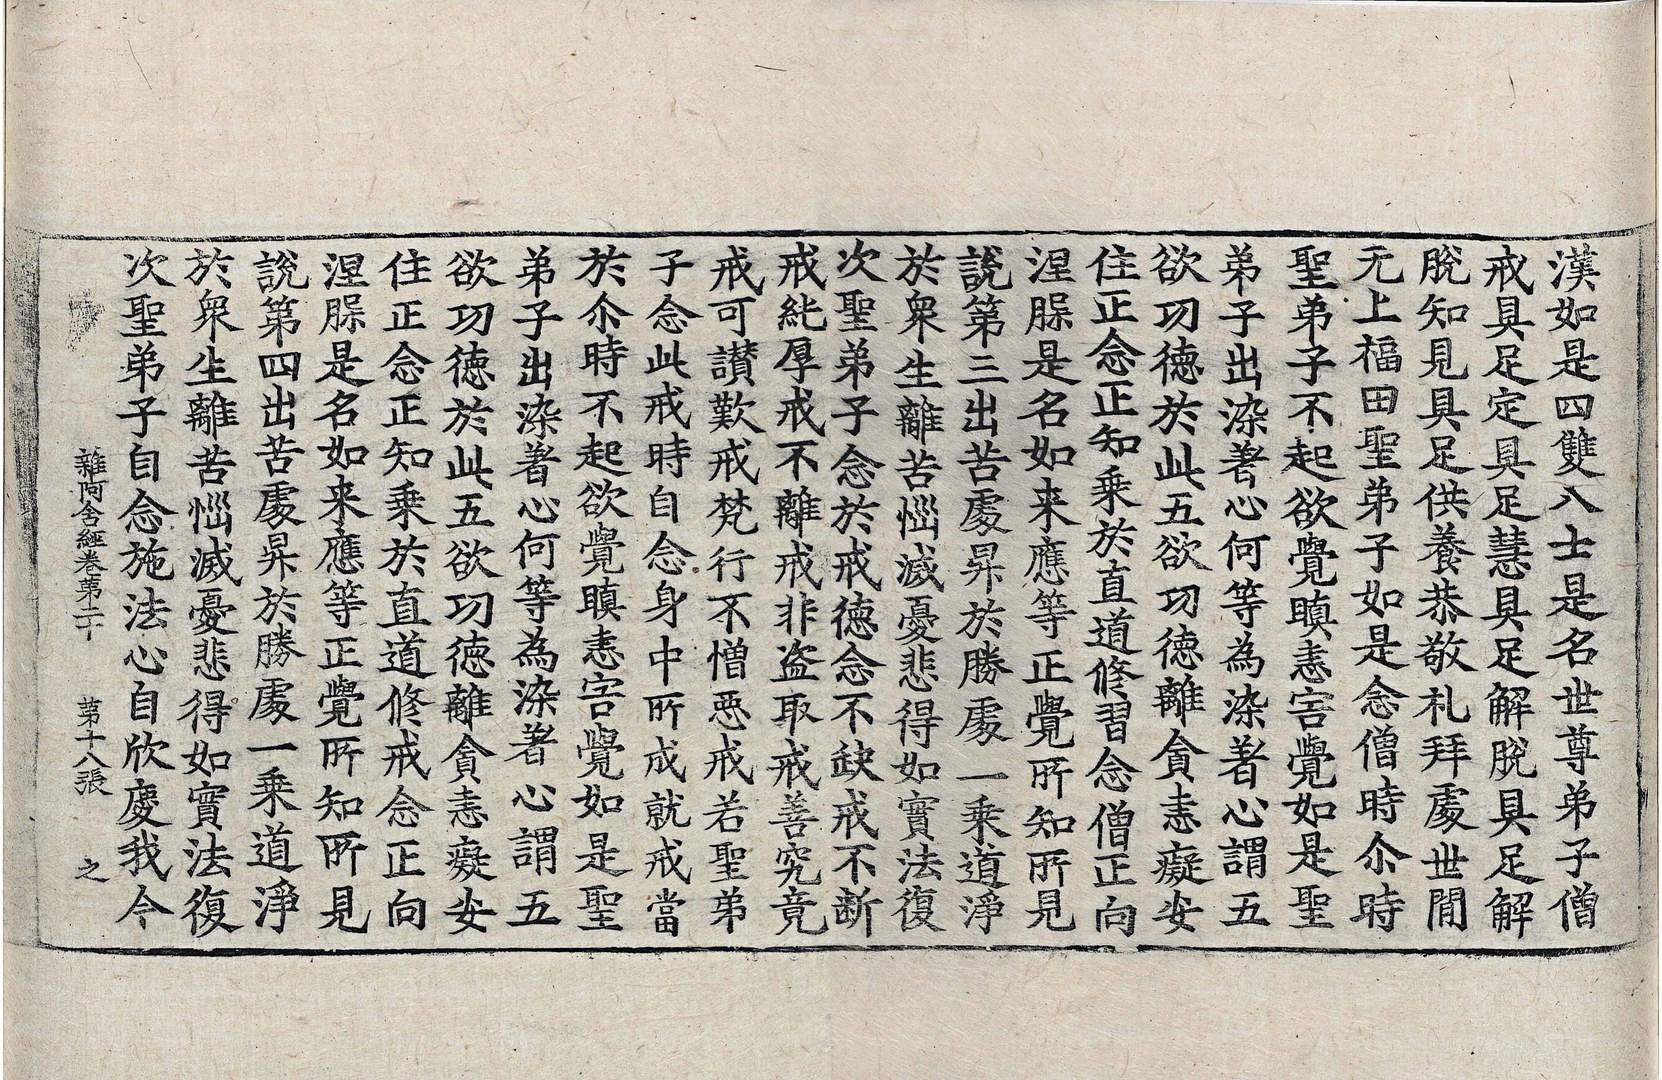 漢如是四雙八士是名世尊弟子僧
戒具足定具足慧具足解脫具足解
脫知見具足供養恭敬礼拜處世間
无上福田聖弟子如是念僧時尒時
聖弟子不起欲覺瞋恚害覺如是聖
弟子出染著心何等為染著心謂五
欲功德於此五欲功德離貪恚癡安
住正念正知乗於直道修習念僧正向
涅槃是名如来應等正覺所知所見
說第三出苦處昇於勝處一乗道淨
於衆生離苦惱滅憂悲得如實法復
次聖弟子念於戒德念不缺戒不斷
戒純厚戒不離戒非盗取戒善究竟
戒可讃歎戒梵行不憎惡戒若聖弟
子念此戒時自念身中所成就戒當
於尒時不起欲覺瞋恚害覺如是聖
弟子出染著心何等為染著心謂五
欲功德於此五欲功德離貪恚癡安
住正念正知乗於直道修戒念正向
涅槃是名如来應等正覺所知所見
說第四出苦處昇於勝處一乗道淨
於衆生離苦惱滅憂悲得如實法復
次聖弟子自念施法心自欣慶我今
雜阿含經卷第二十 第十八張 之